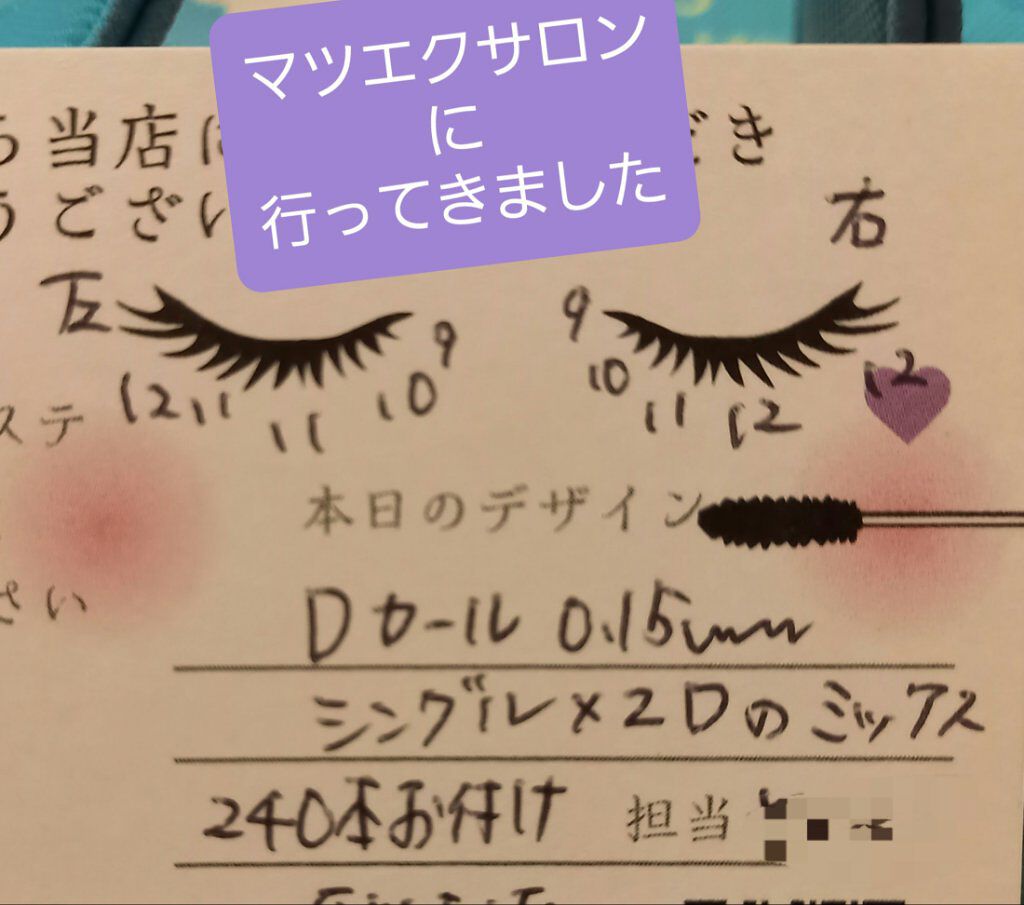 マツエクサロン
に
行ってきました
当店に
だき
ござい
左
右
12 11 11 10 9
9 10 11 12 12
ステ
本日のデザイン
さい
Dカール 0.15mm
シングル×2Dのミックス
240本お付け 担当